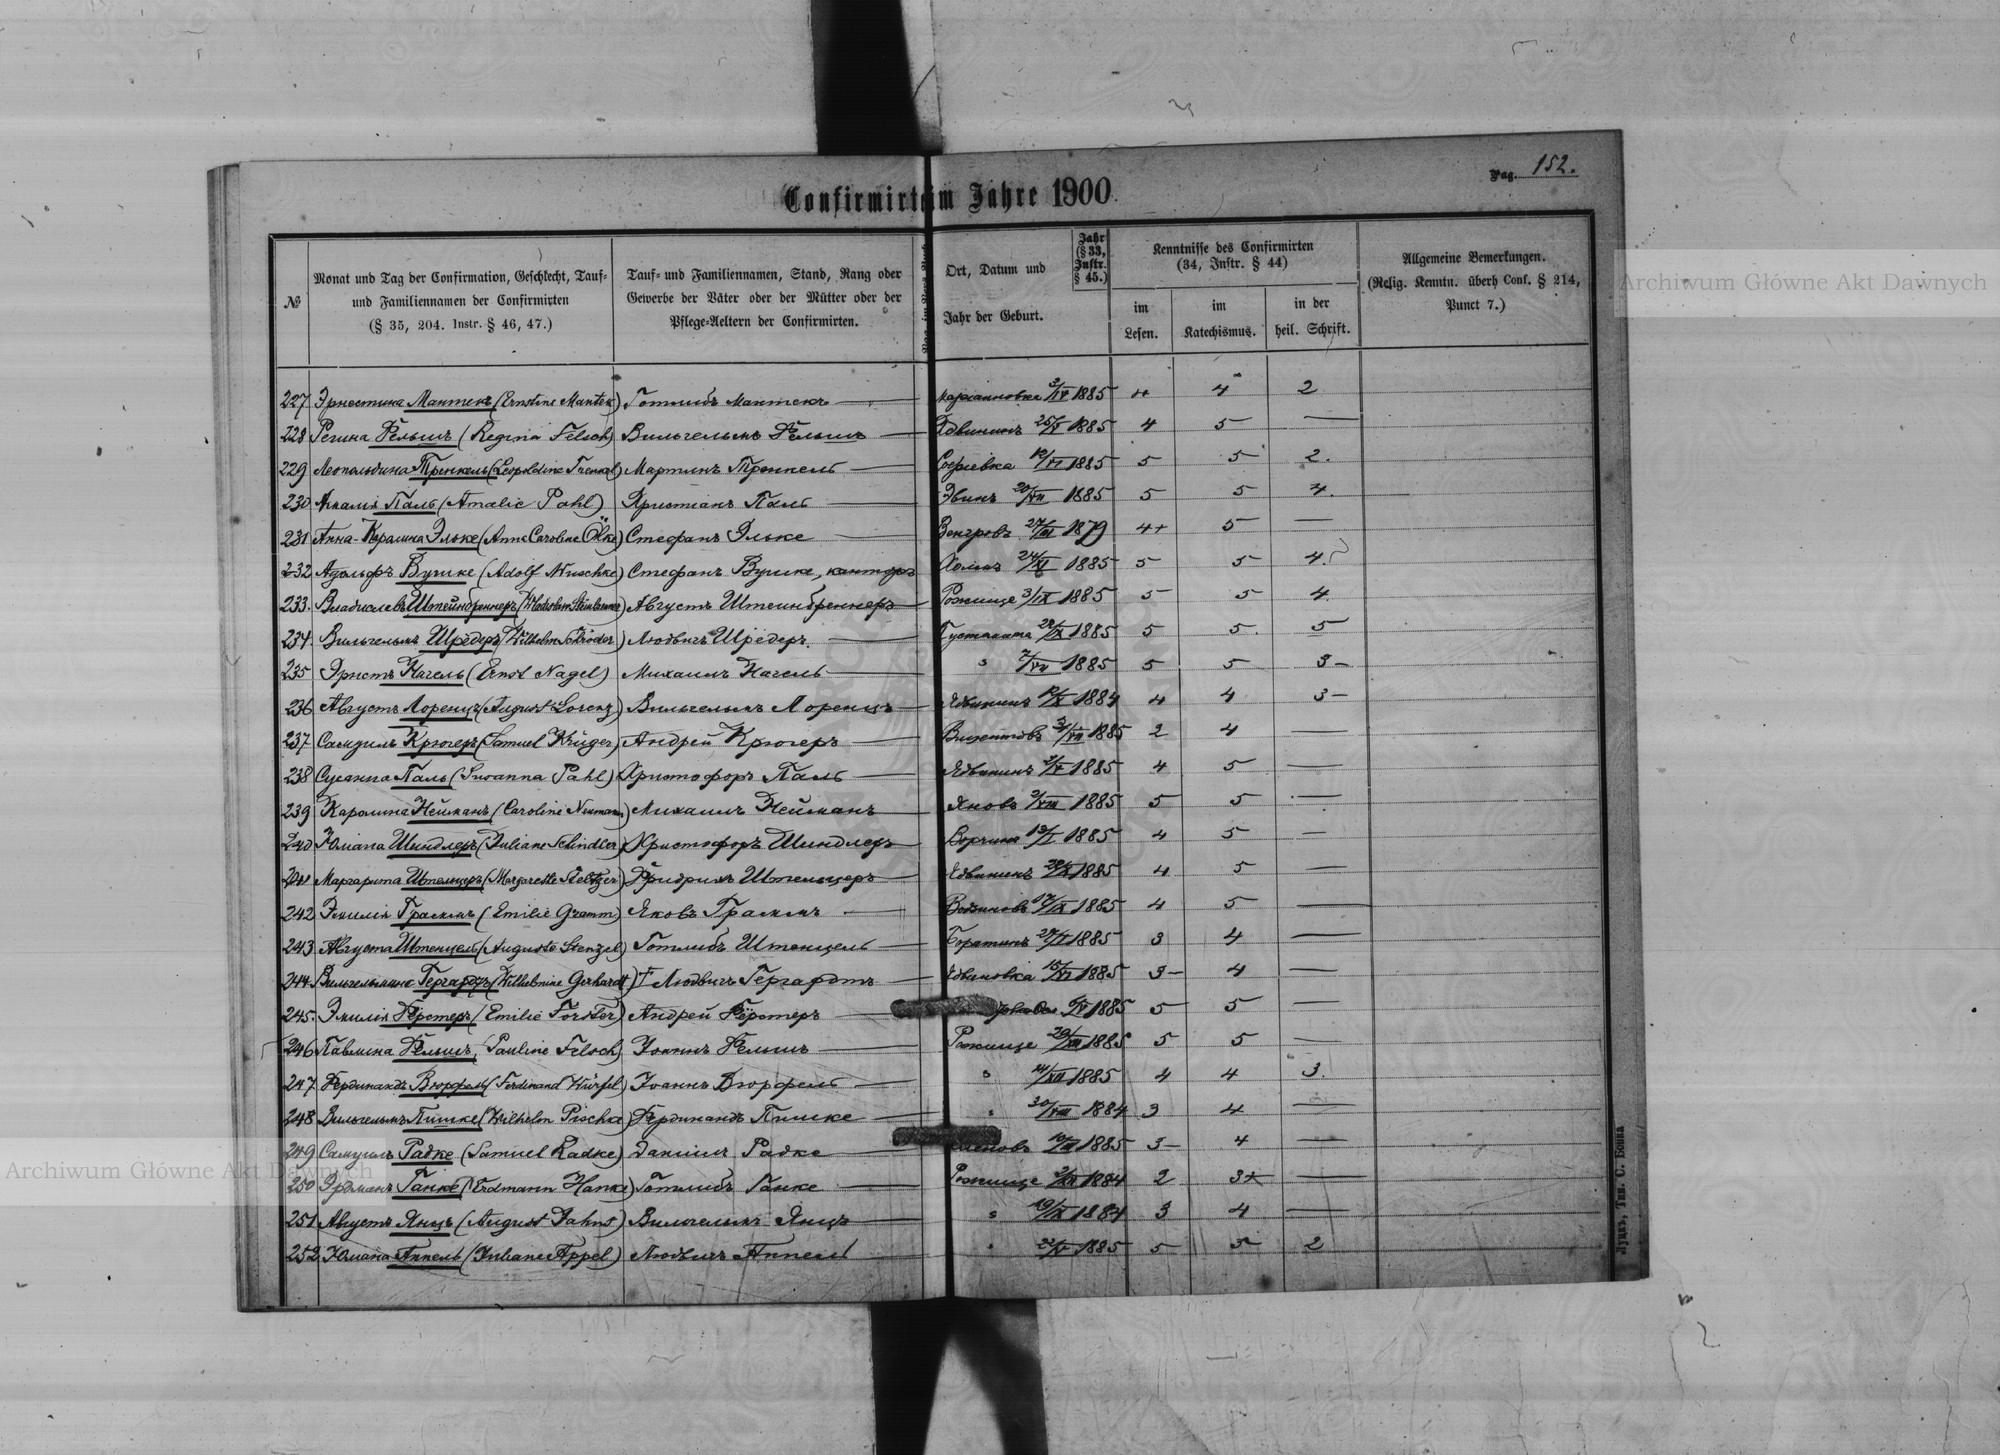 Pag. 152.
Confirmirte im Jahre 1900
№
Monat und Tag der Confirmation, Geschlecht, Tauf-
und Familiennamen der Confirmirten
(§ 35, 204. Instr. § 46, 47.)
Tauf- und Familiennamen, Stand, Rang oder
Gewerbe der Väter oder der Mütter oder der
Pflege-Aeltern der Confirmirten.
Ort, Datum und
Jahr der Geburt.
Jahr
(§ 33,
Instr.
§ 45.)
Kenntnisse des Confirmirten
(34, Instr. § 44)
im
Lesen.
im
Katechismus.
in der
heil. Schrift.
Allgemeine Bemerkungen.
(Relig. Kenntn. überh Conf. § 214,
Punct 7.)
227 Эрнестина Мантекъ (Ernstine Mantek) Готлибъ Мантекъ 1885 4 2
228 Регина Фельшъ (Regina Felsch) Вильгельмъ Фельшъ 1885 4 5 —
229 Леопольдина Тренкель (Leopoldine Trenkel) Мартинъ Тренкель Софіевка 1885 5 5 2.
230 Амалія Паль (Amalie Pahl) Христіанъ Паль 20/XII 1885 5 5 4.
231 Анна-Каролина Эльке (Anna Caroline Ölke) Стефанъ Эльке Венгровъ 1879 4+ 5 —
232 Адольфъ Вушке (Adolf Wuschke) Стефанъ Вушке, канторъ 1885 5 5 4.
233. Владиславъ Штейнбреннеръ (Wladislaw Steinbrenner) Августъ Штейнбреннеръ Рожище 3/IX 1885 5 5 4
234. Вильгельмъ Шрёдеръ (Wilhelm Schröder) Людвигъ Шрёдеръ. 1885 5 5. 5
235 Эрнстъ Нагель (Ernst Nagel) Михаилъ Нагель 1885 5 5 3-
236 Августъ Лоренцъ (August Lorenz) Вильгельмъ Лоренцъ 1884 4 4 3-
237. Самуилъ Крюгеръ (Samuel Krüger) Андрей Крюгеръ 1885 2 4 —
238 Сусанна Паль (Susanna Pahl) Христофоръ Паль 1885 4 5 —
239 Каролина Нейманъ (Caroline Neumann) Михаилъ Нейманъ Яновъ 1885 5 5 —
240 Юліана Шиндлеръ (Juliane Schindler) Христофоръ Шиндлеръ 1885 4 5 —
241 Маргарита Штельцеръ (Margarethe Steltzer) Фридрихъ Штельцеръ 1885 4 5 —
242 Эмилія Граммъ (Emilie Gramm) Яковъ Граммъ 1885 4 5 —
243 Августа Штенцель (Auguste Stenzel) Готлибъ Штенцель Боратинъ 1885 3 4 —
244. Вильгельмина Гергардтъ (Wilhelmine Gerhardt) † Людвигъ Гергардтъ 1885 3- 4 —
245. Эмилія Фёрстеръ (Emilie Förster) Андрей Фёрстеръ 1885 5 5 —
246 Павлина Фельшъ, (Pauline Felsch) Іоаннъ Фельшъ Рожище 1885 5 5 —
247. Фердинандъ Вюрфель (Ferdinand Würfel) Іоаннъ Вюрфель " 1885 4 4 3.
248 Вильгельмъ Пишке (Wilhelm Pischke) Фердинандъ Пишке " 30/VIII 1884 3 4 —
249 Самуилъ Радке (Samuel Radke) Даніилъ Радке 1885 3- 4 —
250 Эрдманъ Ганке (Erdmann Hanke) Готлибъ Ганке Рожище 1884 2 3+ —
251 Августъ Янцъ (August Jahns) Вильгельмъ Янцъ " 1884 3 4 —
252 Юліана Аппель (Juliane Appel) Людвигъ Аппель " 1885 5 5 2
Луцкъ, Тип. С. Бонка
Archiwum Główne Akt Dawnych
Archiwum Główne Akt Dawnych